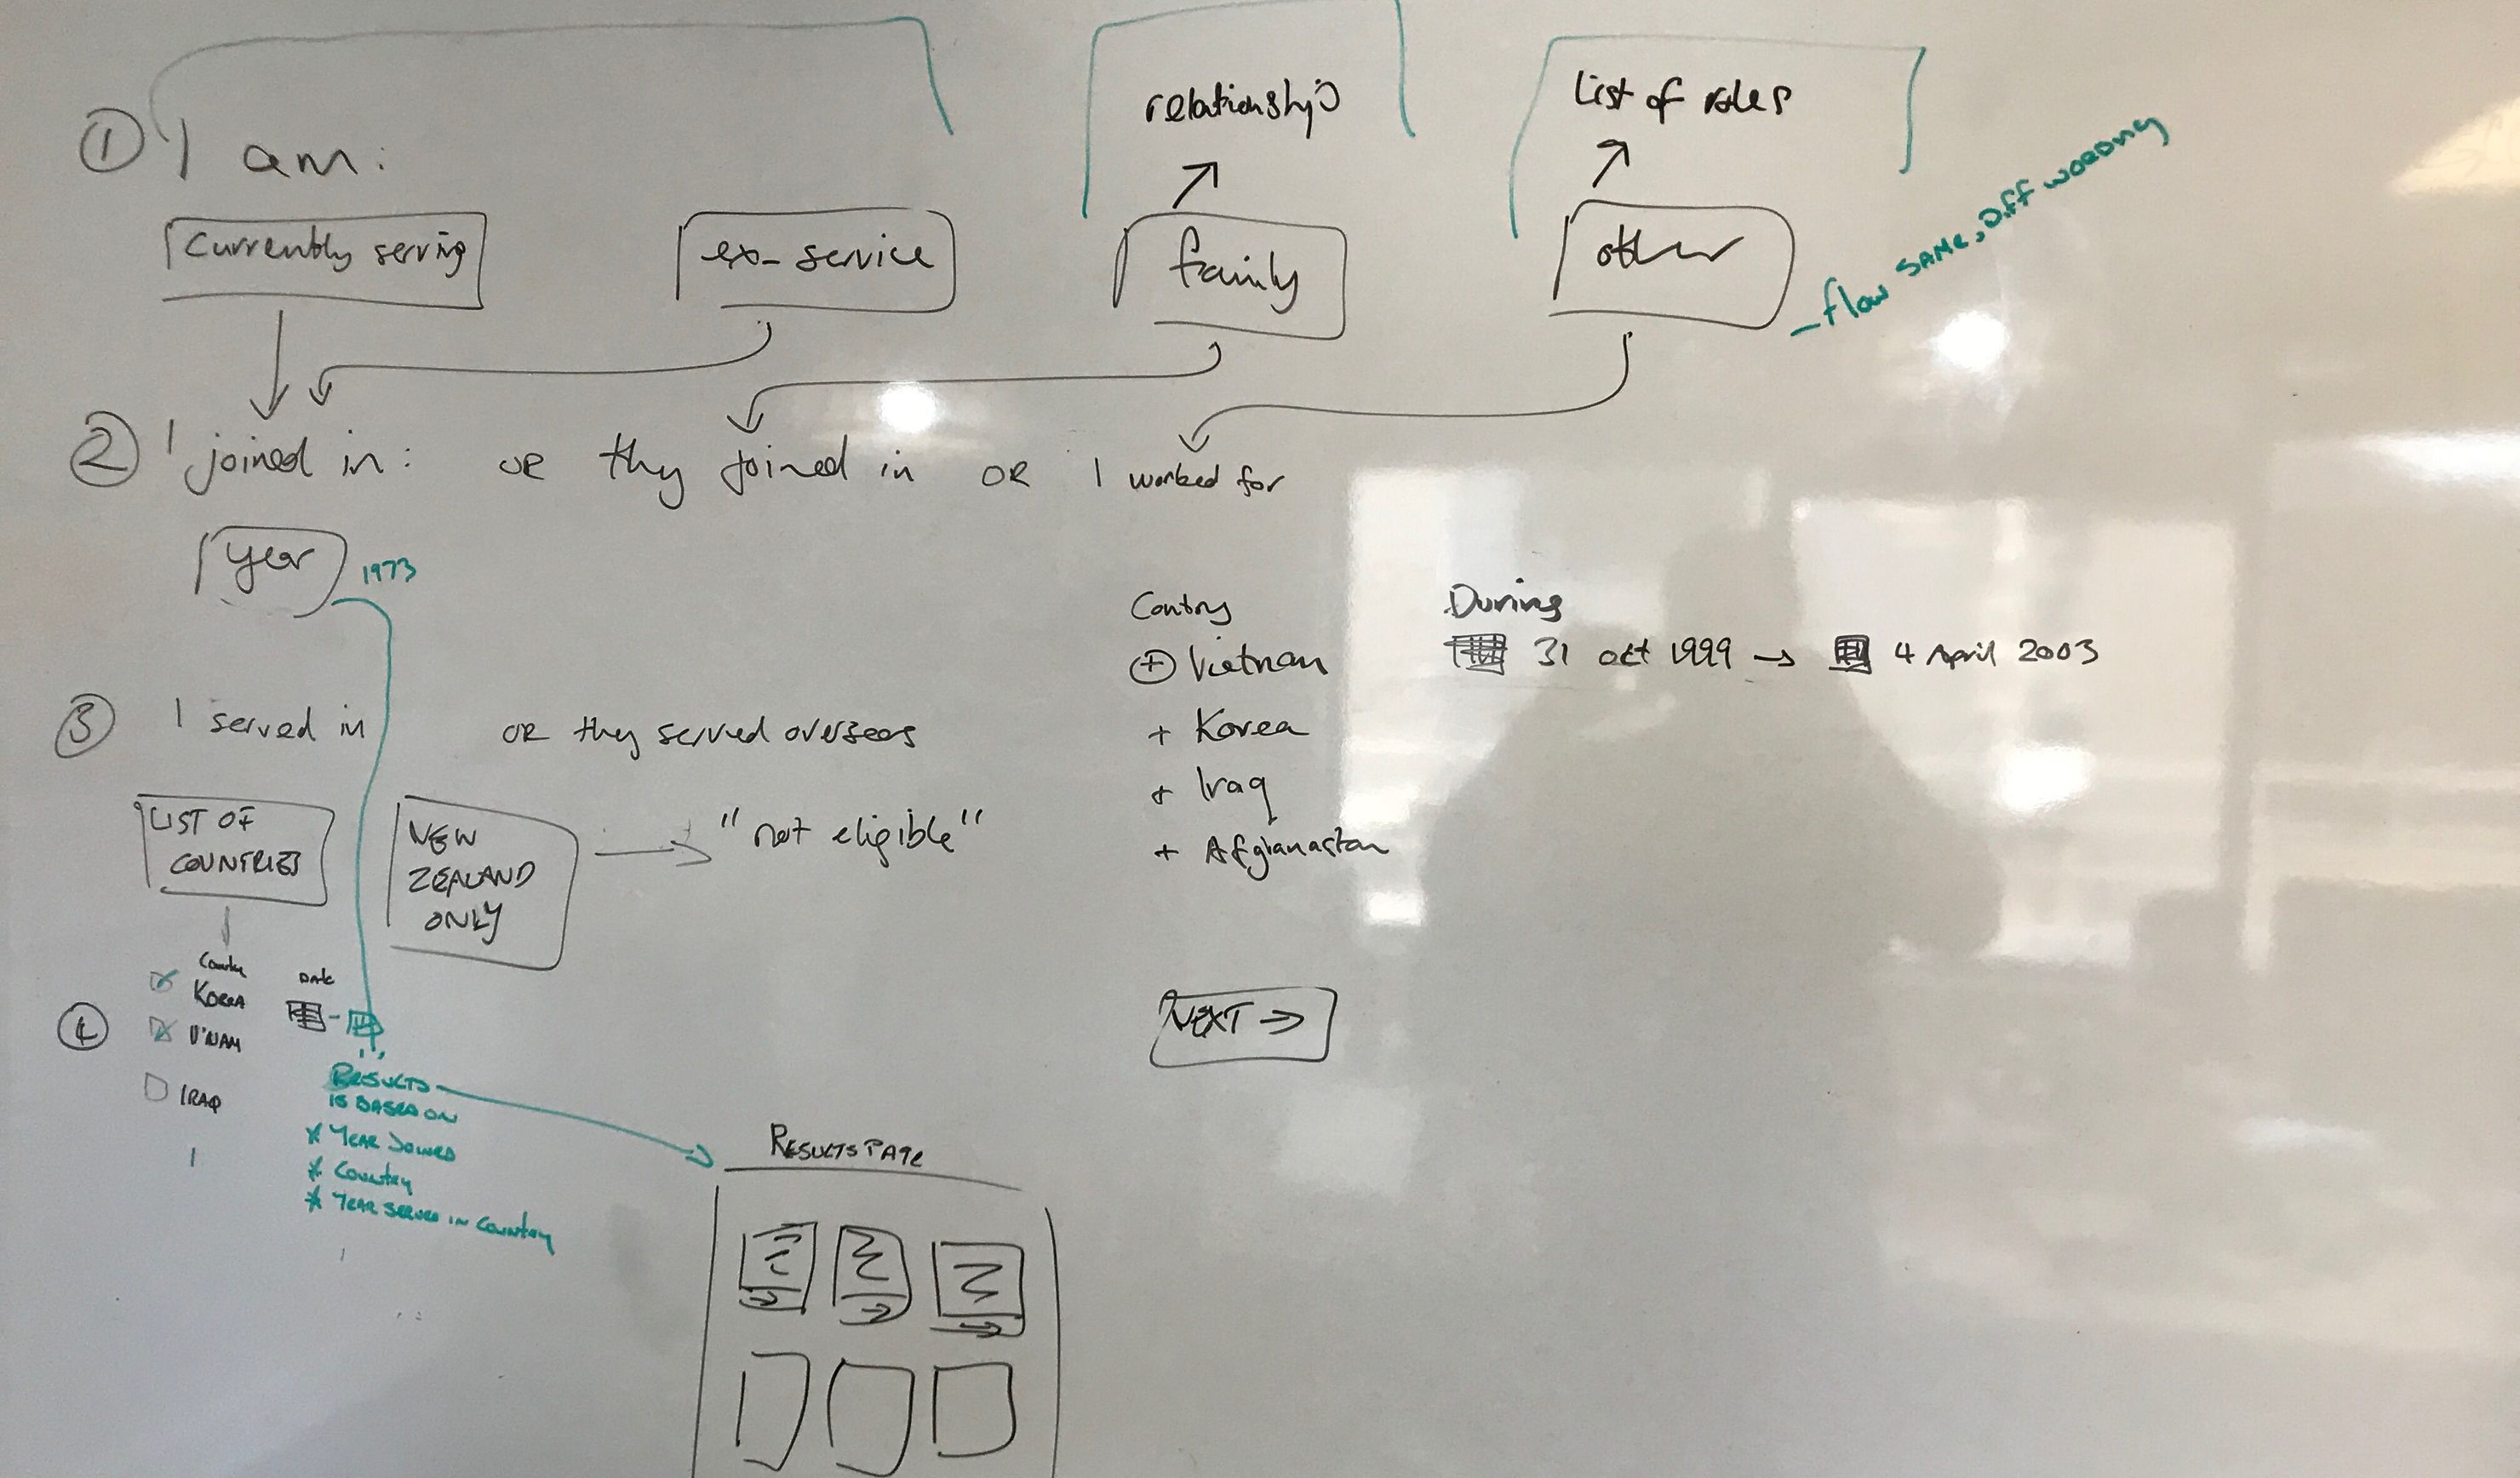 relationship
List of roles
① I am:
Currently serving
ex-service
family
other
- flow SAME, Diff WORDING
② I joined in: OR they joined in OR I worked for
year
1973
Country
During
+ Vietnam
31 oct 1999 → 4 April 2003
+ Korea
+ Iraq
+ Afgianastan
③ I served in OR they served overseas
LIST OF
COUNTRIES
NEW
ZEALAND
ONLY
→ "not eligible"
Date
KOREA
V'NAM
IRAQ
④
NEXT →
RESULTS
IS BASED ON
* YEAR JOINED
* COUNTRY
* YEAR SERVED IN COUNTRY
RESULTS PAGE